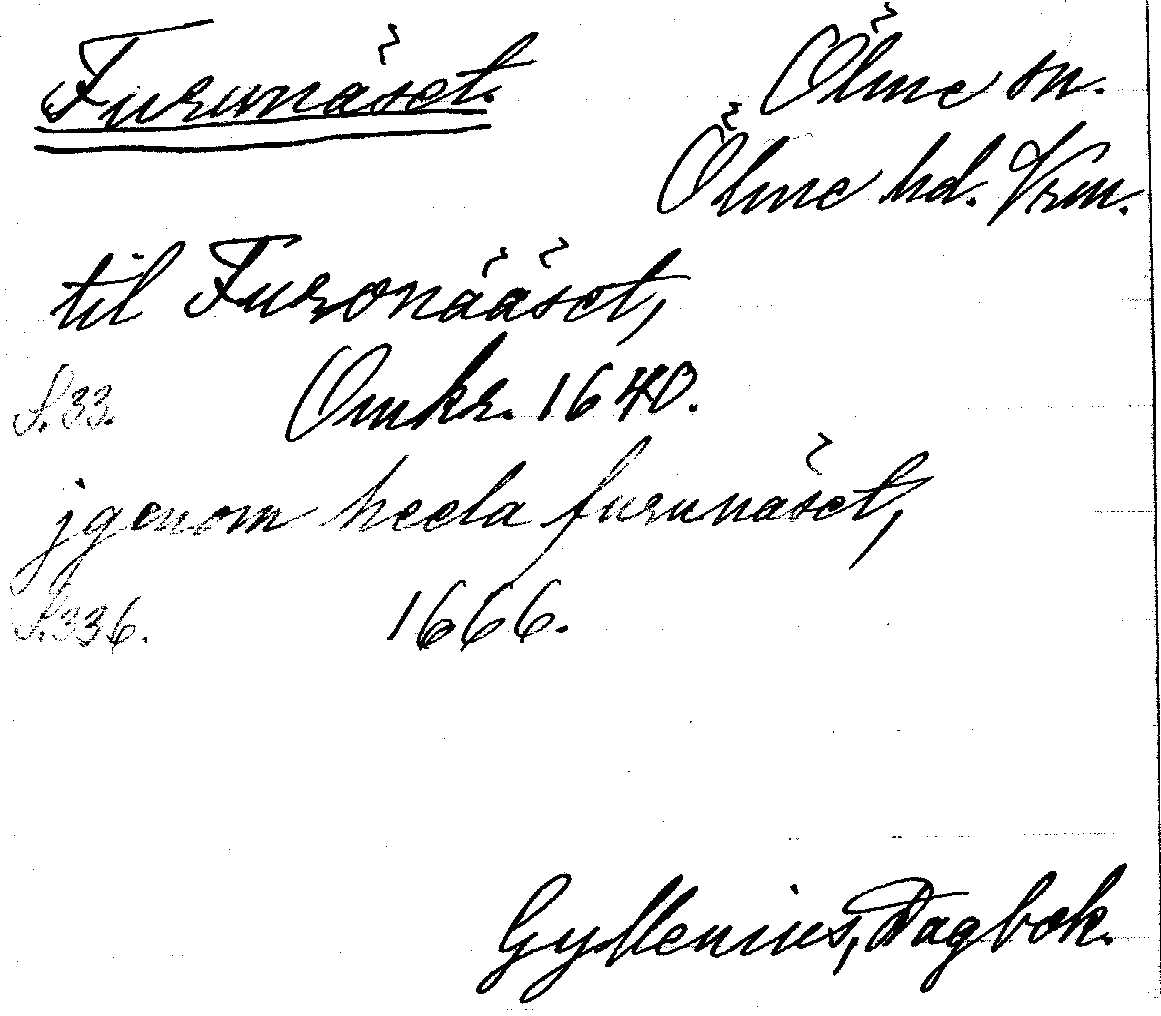 Furunäset.
Ölme sn.
Ölme hd. Vrm.
til Furonääset,
S. 33. Omkr. 1640.
jgenom heela furunäset,
S. 336. 1666.
Gyllenius, Dagbok.